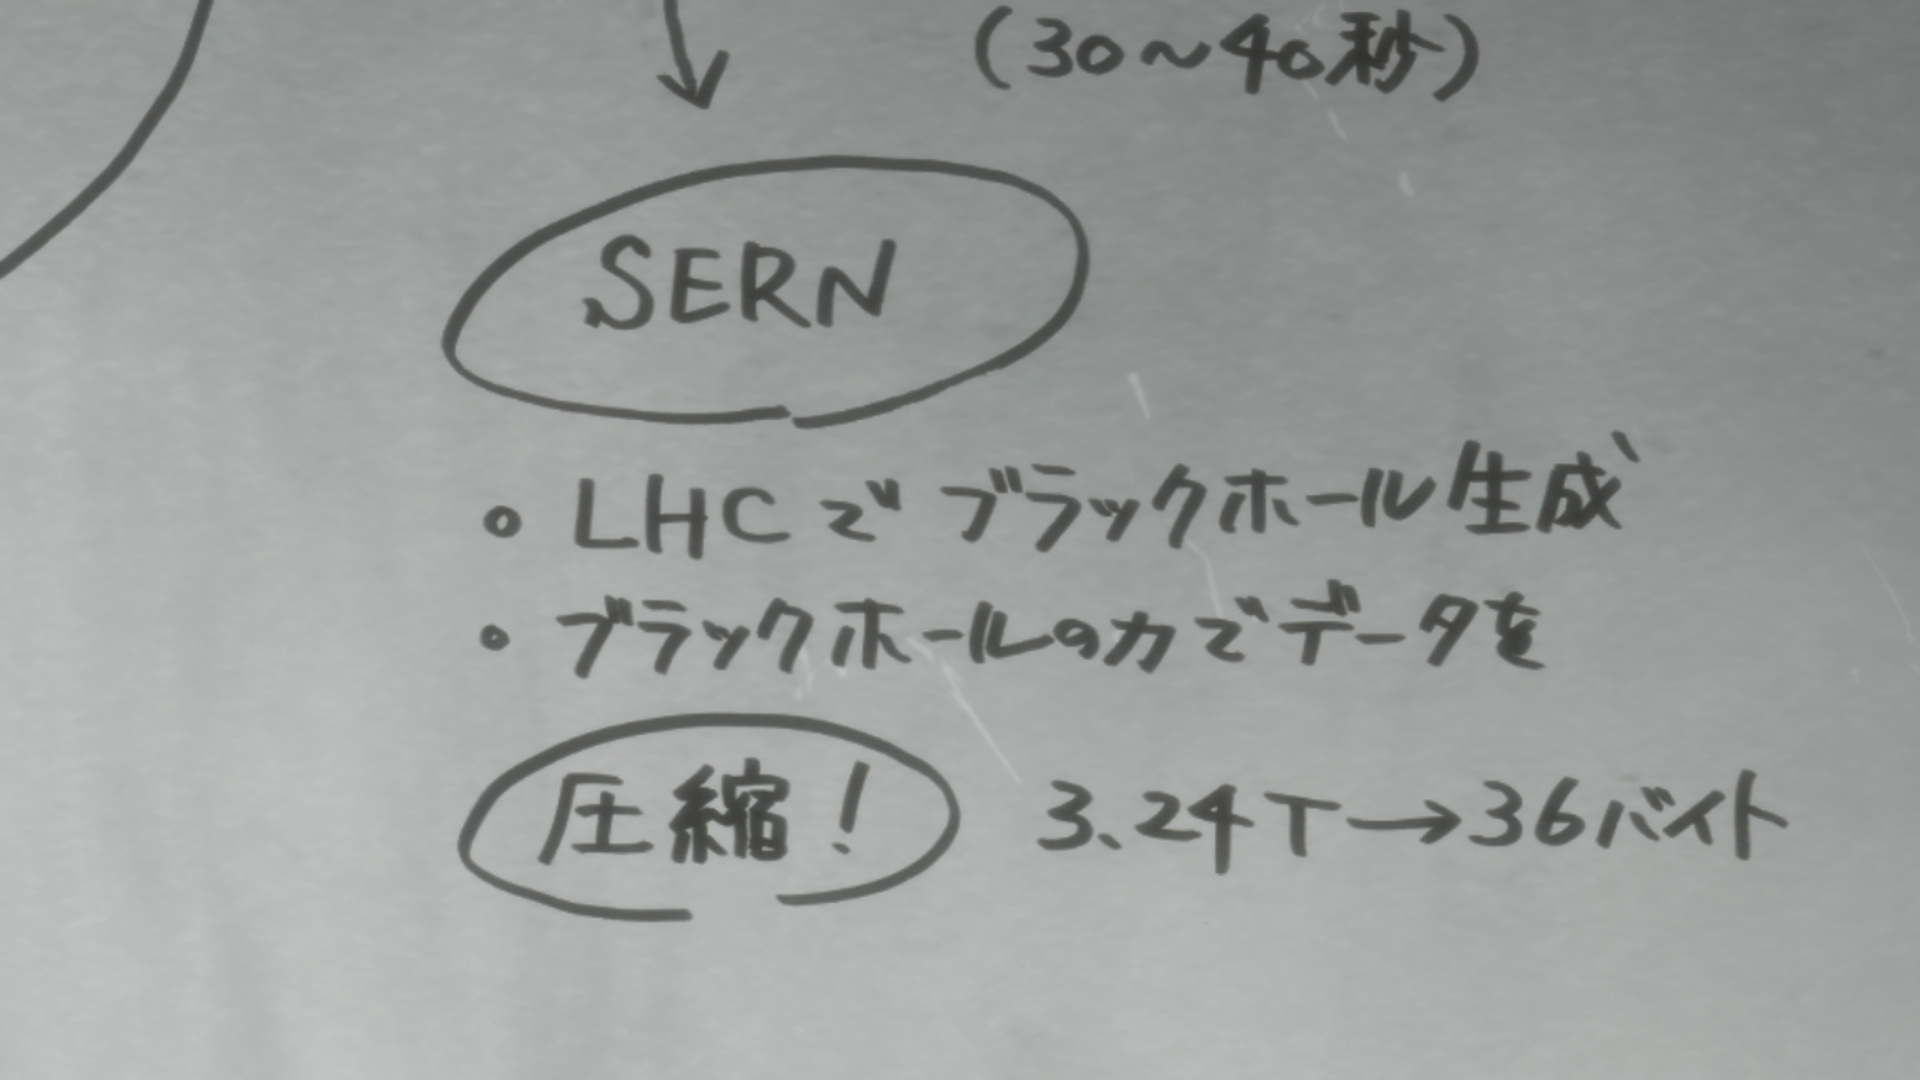 (30～40秒)
SERN
。LHCでブラックホール生成
。ブラックホールの力でデータを
圧縮！ 3.24T→36バイト